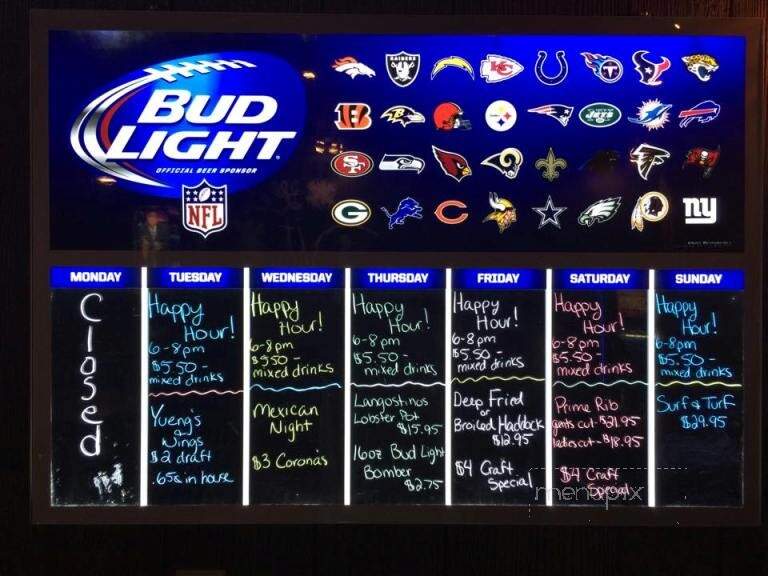 BUD
LIGHT
OFFICIAL BEER SPONSOR
NFL
RAIDERS
KC
T
SF
JETS
G
C
ny
MONDAY
Closed
TUESDAY
Happy
Hour!
6-8pm
$5.50 -
mixed drinks
Yueng's
&
Wings
$2 draft
.65¢ in house
WEDNESDAY
Happy
Hour!
6-8pm
$5.50 -
mixed drinks
Mexican
Night
$3 Coronas
THURSDAY
Happy
Hour!
6-8pm
$5.50 -
mixed drinks
Langostinos
Lobster Pot
$15.95
16oz Bud Light
Bomber
$2.75
FRIDAY
Happy
Hour!
6-8pm
$5.50 -
mixed drinks
Deep Fried
or
Broiled Haddock
$12.95
$4 Craft
Special
SATURDAY
Happy
Hour!
6-8pm
$5.50 -
mixed drinks
Prime Rib
gents cut - $21.95
ladies cut - $18.95
$4 Craft
Special
SUNDAY
Happy
Hour!
6-8pm
$5.50 -
mixed drinks
Surf & Turf
$29.95
menupix